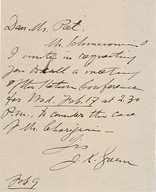 Dear Mr. Peet,
Mr. Schurman
I unite in requesting
you to call a meeting
of the Station Conference
for Wed. Feb. 17 at 2.30
P.m. to consider the case
of Mr. Chargin
Yrs
J. K. Greene
Feb. 9